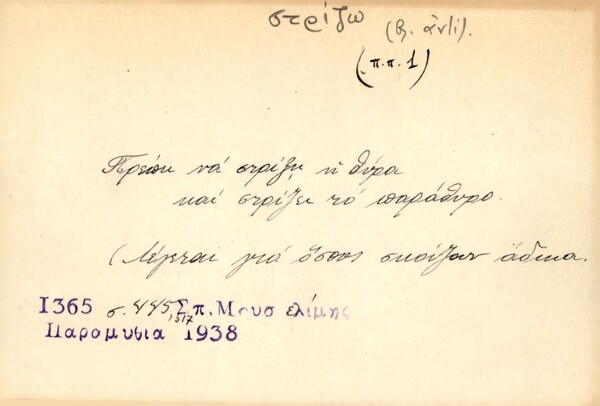 στρίζω (βλ. ἀντί).
(π.π. 1)
Πρέπει νά στρίξῃ ἡ θύρα
καί στρίζει τό παράθυρο.
(Λέγεται γιά ὅσους σκούζουν ἄδικα.
1365 σ. 445,517 Σπ. Μουσελίμης
Παραμυθια 1938